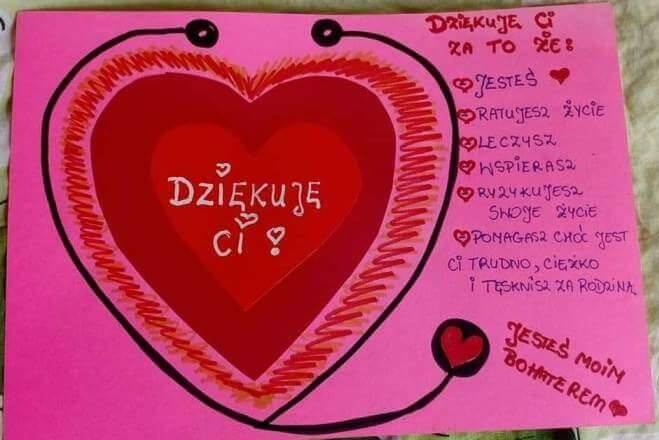 DZIĘKUJĘ
CI !
DZIĘKUJĘ CI
ZA TO ŻE:
JESTEŚ
RATUJESZ ŻYCIE
LECZYSZ
WSPIERASZ
RYZYKUJESZ
SWOJE ŻYCIE
POMAGASZ CHOĆ JEST
CI TRUDNO, CIĘŻKO
I TĘSKNISZ ZA RODZINĄ
JESTEŚ MOIM
BOHATEREM